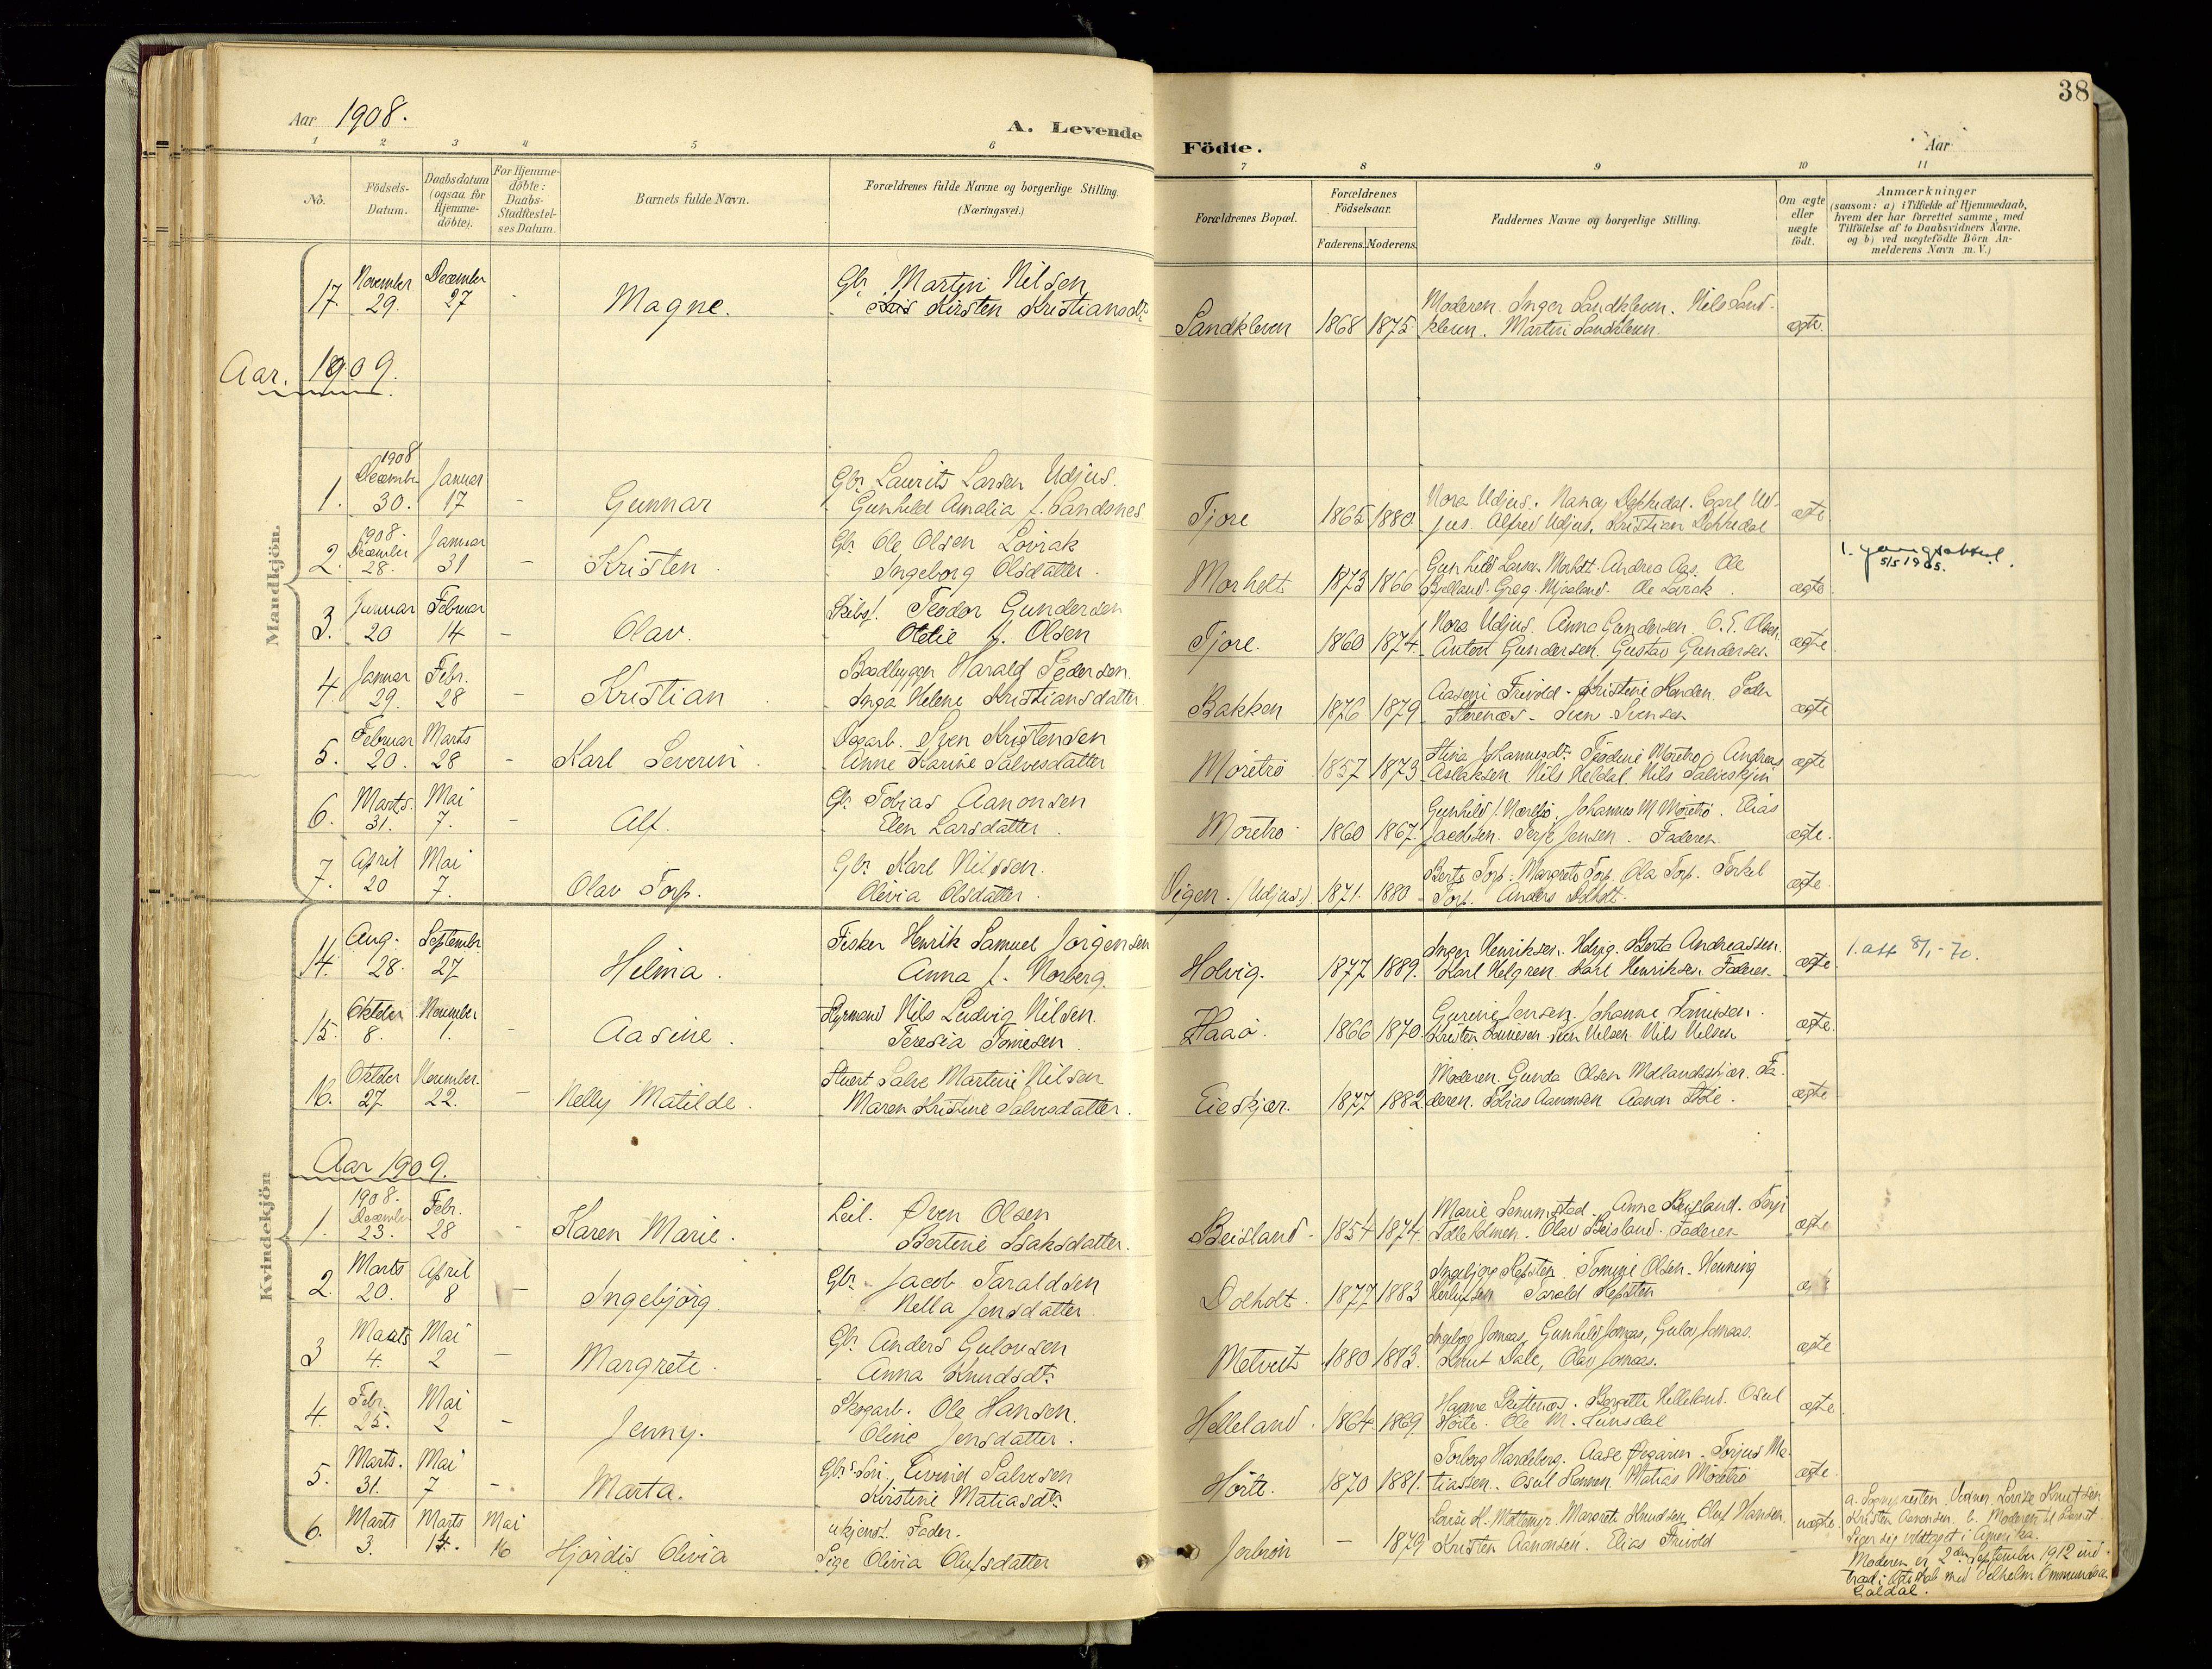 38
Aar 1908.
A. Levende Födte.
Aar
1 2 3 4 5 6 7 8 9 10 11
No.
Födsels-Datum.
Daabsdatum (ogsaa for Hjemme-döbte).
For Hjemme-döbte: Daabs-Stadfæstel-ses Datum.
Barnets fulde Navn.
Forældrenes fulde Navne og borgerlige Stilling. (Næringsvei.)
Forældrenes Bopæl.
Forældrenes Födselsaar.
Faderens. Moderens.
Faddernes Navne og borgerlige Stilling.
Om ægte eller uægte födt.
Anmærkninger
(saasom: a) i Tilfælde af Hjemmedaab, hvem der har forrettet samme, med Tilföielse af to Daabsvidners Navne. og b) ved uægtefödte Börn An-melderens Navn m.V.)
Mandkjön.
17. November 29. December 27 - Magne. Gbr. Martin Nilsen
Kirsten Kristiansdtr
Sandkleven 1868 1875 Moderen. Inger Sandkleven. Nils Sand-
kleven. Martin Sandkleven. ægte.
Aar. 1909.
1. 1908 December 30. Januar 17 - Gunnar Gbr. Laurits Larsen Udjus.
Gunhild Amalia f. Sandsnes
Tjore 1865 1880. Nora Udjus. Nancy Carl Ud-
jus. Alfred Udjus. Kristian ægte
2. 1908. December 28. Januar 31 - Kristen. Gbr. Ole Olsen Lovrak
Ingeborg Olsdatter.
Morholt 1873 1866 Gunhild Larsen Morholt. Andrea Aas. Ole
Greg. Mjaaland. Ole Lovrak. ægte.
5/5 1965.
3. Januar 20 Februar 14 - Olav. Skibsf. Teodor Gundersen
Otelie f. Olsen
Tjore. 1860 1874. Nora Udjus. Anna Gundersen. O. T. Olsen.
Anton Gundersen. Gustav Gundersen ægte.
4. Januar 29. Febr. 28 - Kristian Baadbygger Harald Pedersen.
Inga Helene Kristiansdatter
Bakken 1876 1879 Aaseni Frivold - Kristine Peder
- Sven Svensen ægte
5. Februar 20. Marts 28 - Karl Severin. Dagarb. Sven Kristensen
Anne Karine Salvesdatter
Moretrö 1857 1873 Stina Johannesdtr. Teodine Moretrö, Andreas
Aslaksen Nils Heldal. Nils ægte
6. Marts. 31. Mai 7. - Alf. Gbr. Tobias Aanonsen
Elen Larsdatter.
Moretrö 1860 1867. Gunhild Johannes M Moretrö. Elias
Jacobsen. Terje Jensen. Faderen. ægte.
7. April 20 Mai 7. Olav Torp. Gbr. Karl Nilssen.
Olivia Olsdatter.
Vigen. (Udjus). 1871. 1880 Berte Torp. Margrete Torp. Ola Torp. Terkel
Torp. Anders Dolholt. ægte.
Kvindekjön
14. Aug. 28. September 27 Helma. Fisker Henrik Samuel Jörgensen
Anna f. Norberg.
Holvig. 1877 1889. Inger Henriksen. Holvig. Berta Andreassen.
Karl Helgren. Karl Henriksen. Faderen ægte 1. att 8/1-70.
15. Oktober 8. November 1. - Aasine. Styrmand Nils Ludvig Nilsen.
Teresia Tomesen
Haaö. 1866 1870. Gurine Jensen. Johanne Tomesen.
Kristen Tomesen Sven Nilsen. Nils Nilsen ægte.
16. Oktober 27 November. 22. - Nelly Matilde. Stuert Salve Martin Nilsen
Maren Kristine Salvesdatter.
Eieskjær. 1877 1882 Moderen. Gunda Olsen Fa-
deren. Tobias Aanonsen Aanon ægte
Aar 1909.
1. 1908. December 23. Febr. 28 - Karen Marie. Leil. Öven Olsen
Bertine Isaksdatter.
Beisland - 1854 1874. Marie Anna Beisland. Terje
Olav Beisland. Faderen ægte
2. Marts 20. April 8 - Ingebjörg. Gbr. Jacob Taraldsen
Nella Jensdatter.
Dolholt. 1877 1883 Ingebjörg Tomine Olsen. Henning
Tarald
3 Marts 4. Mai 2 - Margrete. Gbr. Anders Gulovsen
Anna Knudsdtr
Metveit 1880 1883. Ingeborg Jomaas, Gunhild Jomaas, Gulov Jomaas.
Knut Dale, Olav Jomaas. ægte
4. Febr. 25. Mai 2 - Jenny. Skogarb. Ole Hansen.
Oline Jensdatter.
Helleland. 1864 1869 Hanna Bergitte Helleland. Osul
Hörte. Ole M. ægte
5. Marts. 31. Mai 7. - Marta. Gbrs Sön. Eivind Salvesen
Kristine Matiasdtr.
Hörte. 1870 1881. Torborg Hardeberg. Aase Torjus Ma-
tiassen. Osul Matias Moretrö ægte.
6. Marts 3. Marts 14. Mai 16 Hjördis Olivia ukjent. Fader.
Pige Olivia Olufsdatter
- 1879 Louise H. Margrete Knudsen Oluf Hansen.
Kristen Aanonsen. Elias Frivold uægte
a. Sognepresten, Louise Knutsen
Kristen Aanonsen. b. Moderen
i Amerika.
Moderen er 2den September 1912 ind-
traad i Ægteskab med Vilhelm Ommundsen
Galdal.